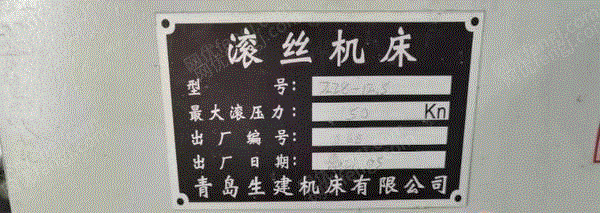 滚丝机床
型 号: Z28-12.5
最大滚压力: Kn
出厂编号:
出厂日期:
青岛生建机床有限公司